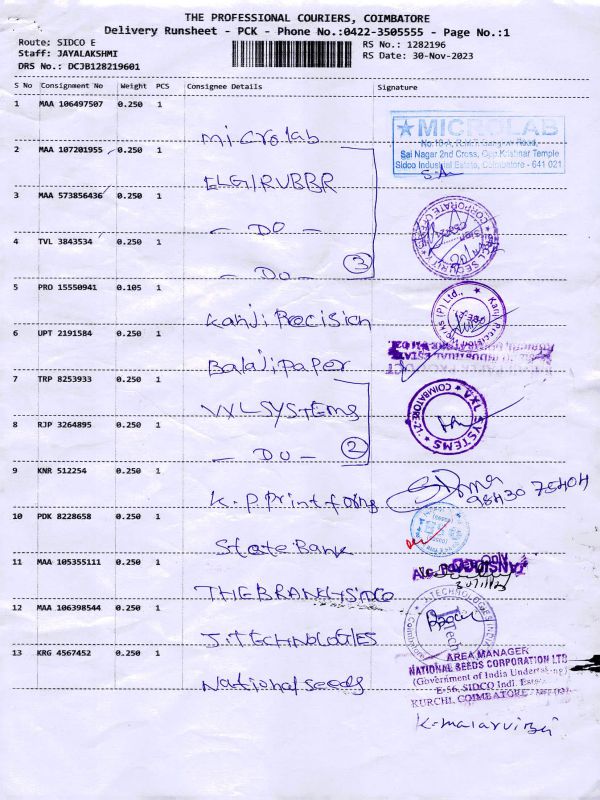 THE PROFESSIONAL COURIERS, COIMBATORE
Delivery Runsheet - PCK - Phone No.:0422-3505555 - Page No.:1
Route: SIDCO E
RS No.: 1282196
Staff: JAYALAKSHMI
RS Date: 30-Nov-2023
DRS No.: DCJB128219601
S No Consignment No Weight PCS Consignee Details Signature
1 MAA 106497507 0.250 1
microlab
MICROLAB
Sai Nagar 2nd Cross, Opp Krishnar Temple
Sidco Industrial Estate, Coimbatore - 641 021
2 MAA 107201955 0.250 1
ELGI RUBBR
3 MAA 573856436 0.250 1
- DO -
4 TVL 3843534 0.250 1
- DO -
3
5 PRO 15550941 0.105 1
Kanji Precision
Kanji Precision Works (P) Ltd.,
6 UPT 2191584 0.250 1
Balaji paper
7 TRP 8253933 0.250 1
VXL SYSTEMS
AXL SYSTEMS
COIMBATORE-21
8 RJP 3264895 0.250 1
- DO -
2
9 KNR 512254 0.250 1
K.P. Print
98430 75404
10 PDK 8228658 0.250 1
State Bank
11 MAA 105355111 0.250 1
THE BRANCH SIDCO
12 MAA 106398544 0.250 1
J.TECHNOLOGIES
13 KRG 4567452 0.250 1
National seeds
AREA MANAGER
NATIONAL SEEDS CORPORATION LTD
(Government of India Undertaking)
E-56, SIDCO Indl. Estate
KURCHI, COIMBATORE
K. malarvizhi